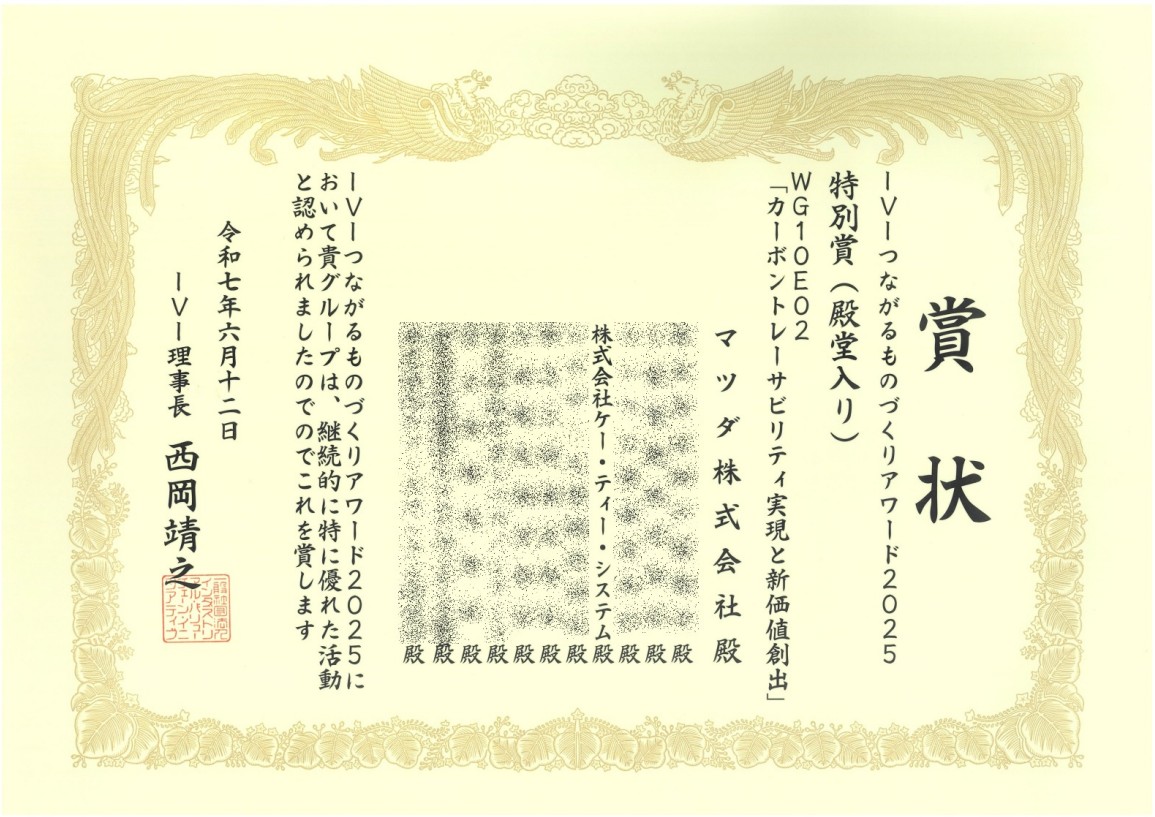 賞状
IVIつながるものづくりアワード2025
特別賞(殿堂入り)
WG10E02
「カーボントレーサビリティ実現と新価値創出」
マツダ株式会社殿
殿
殿
殿
株式会社ケー・ティー・システム殿
殿
殿
殿
殿
殿
殿
殿
IVIつながるものづくりアワード2025に
おいて貴グループは、継続的に特に優れた活動
と認められましたのでのでこれを賞します
令和七年六月十二日
IVI理事長 西岡靖之